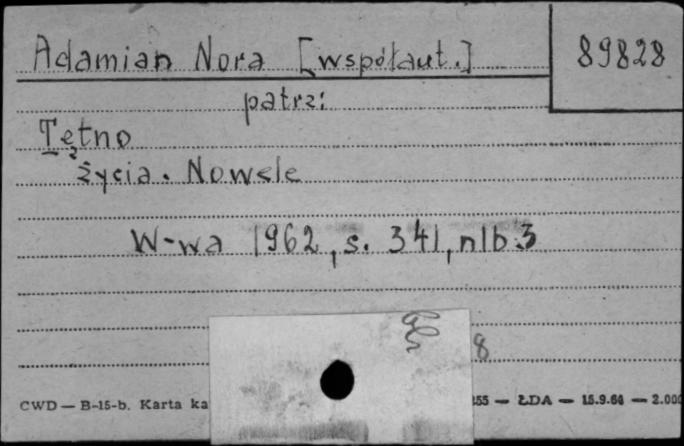 Adamian Nora [współaut.]
89828
patrz:
Tętno
życia. Nowele
W-wa 1962, s. 341, nlb 3
8
CWD — B-15-b. Karta ka
55 — ŁDA — 15.9.64 — 2.000